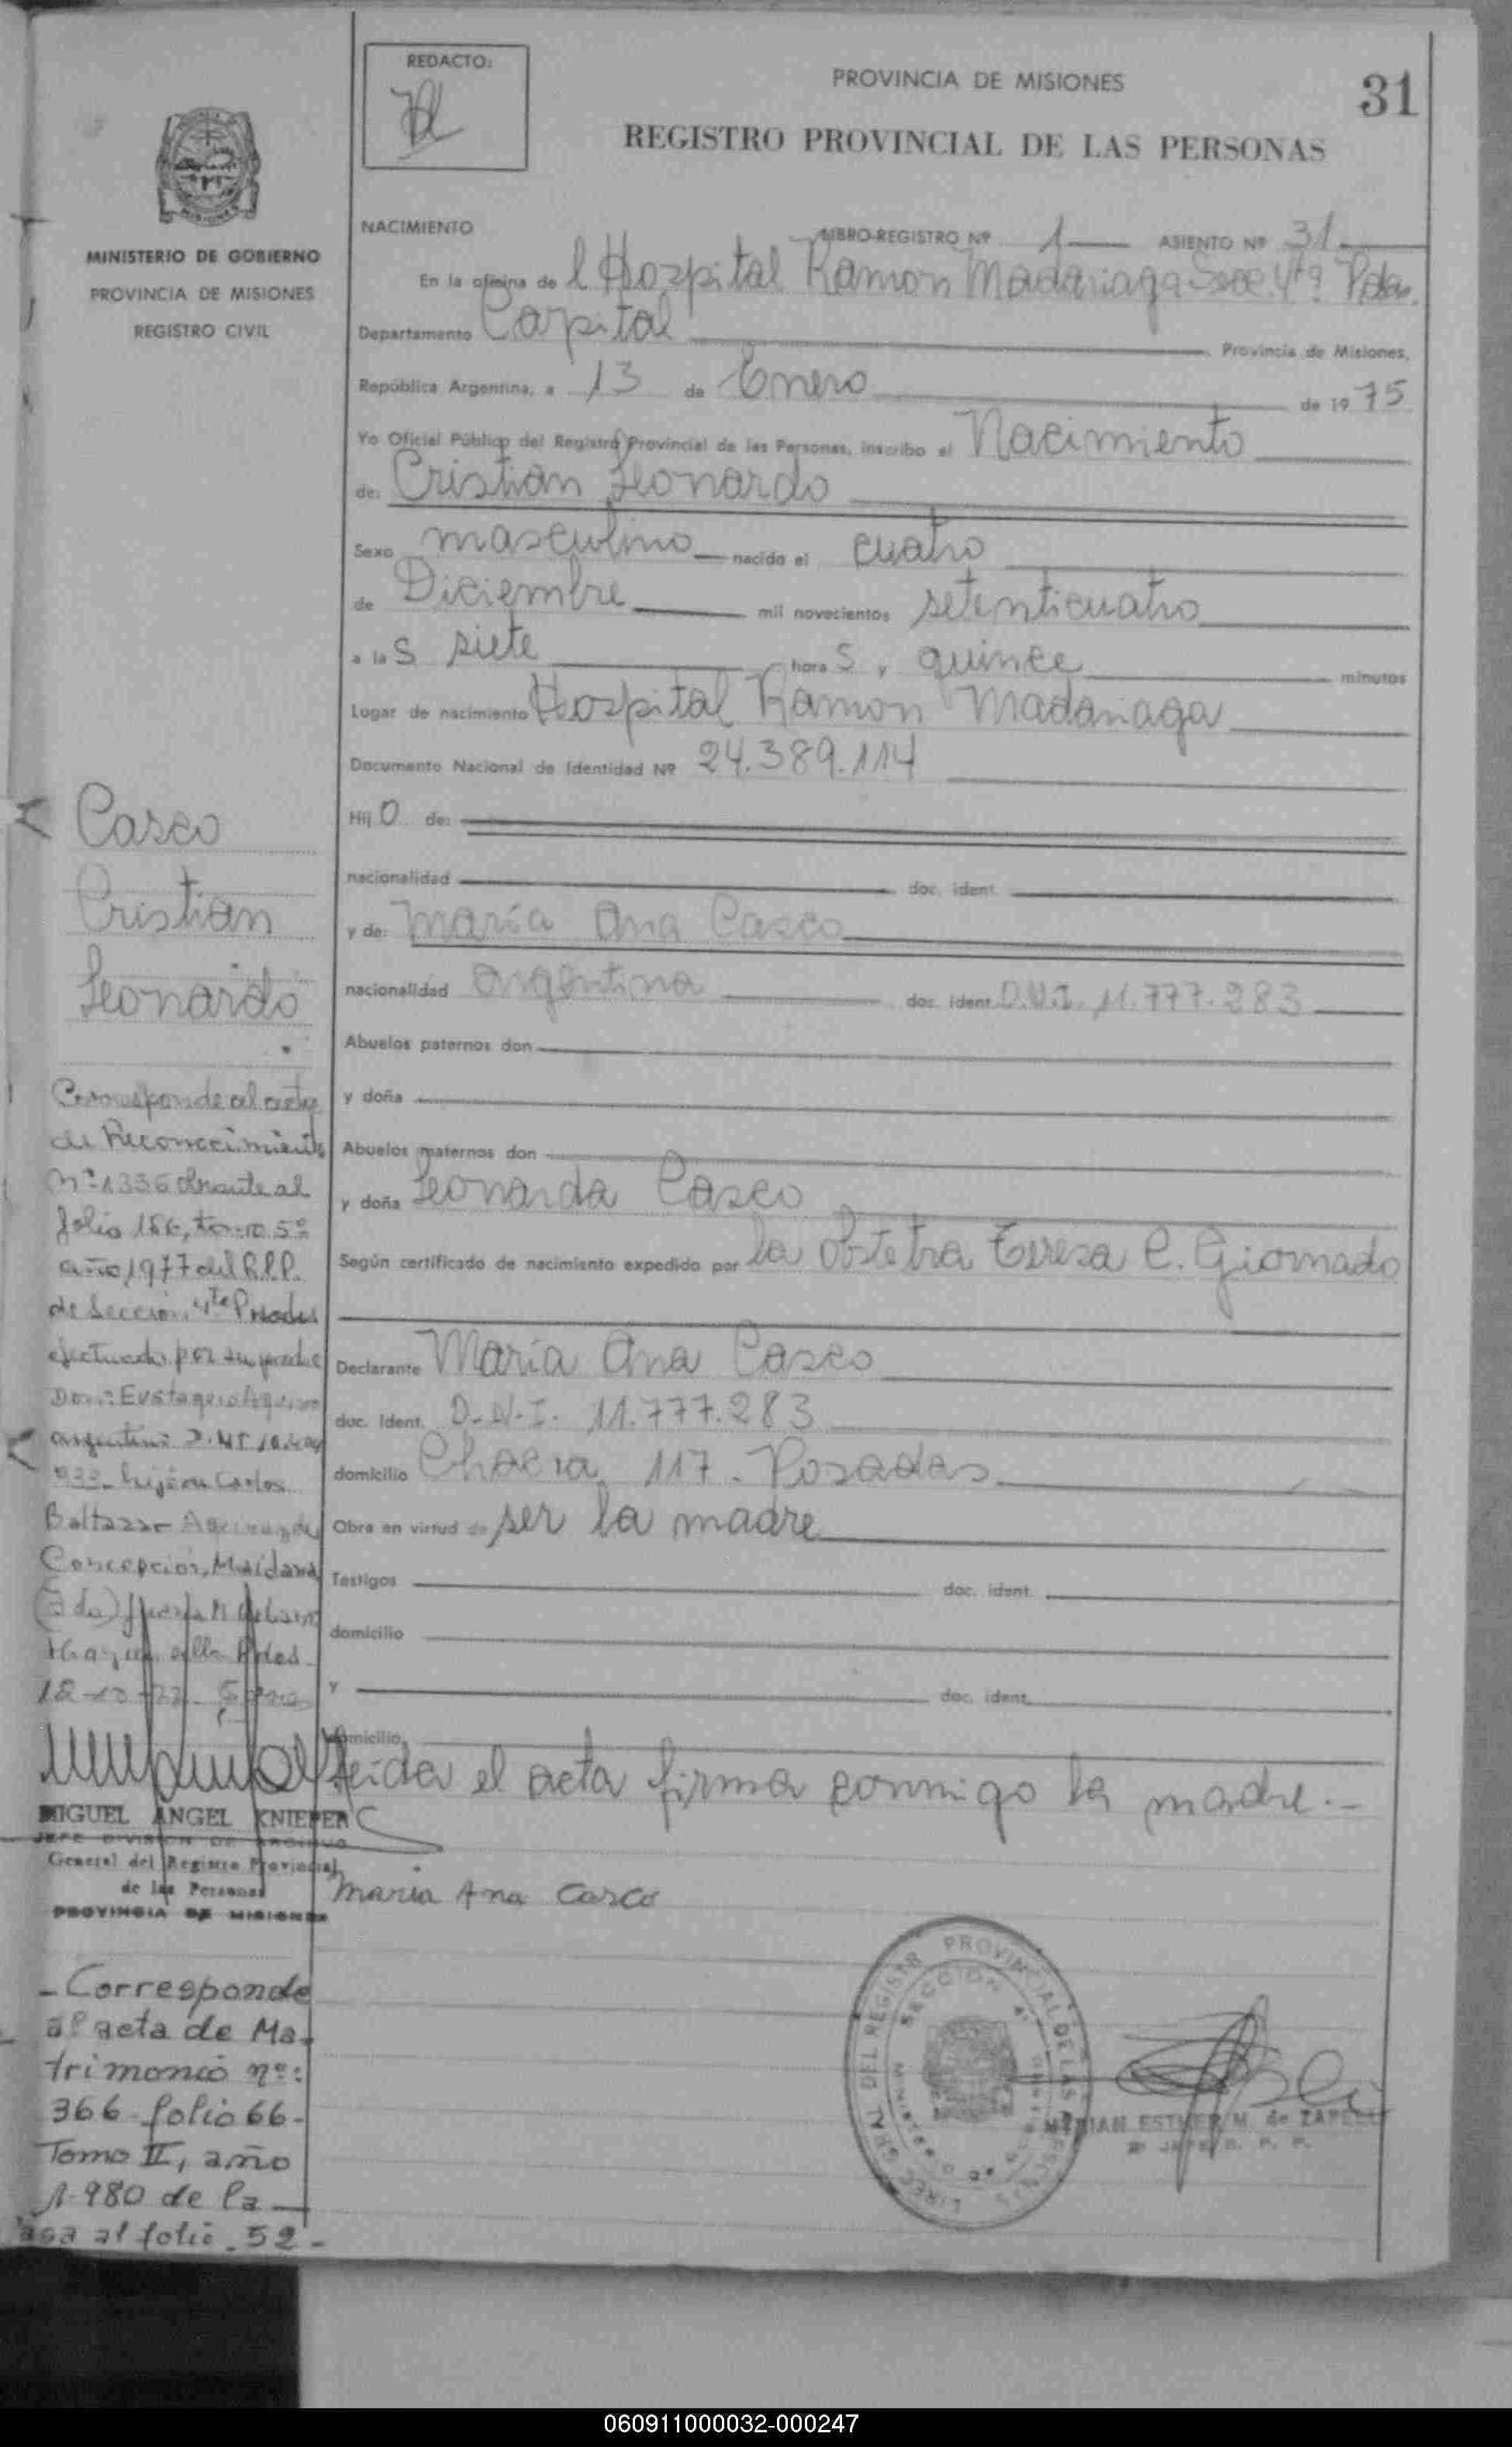 REDACTO:
PROVINCIA DE MISIONES
31
REGISTRO PROVINCIAL DE LAS PERSONAS
MINISTERIO DE GOBIERNO
PROVINCIA DE MISIONES
REGISTRO CIVIL
NACIMIENTO LIBRO-REGISTRO Nº 1 ASIENTO Nº 31
En la oficina de l Hospital Ramon Madariaga Secc. 4ta Pdas.
Departamento Capital Provincia de Misiones,
República Argentina, a 13 de Enero de 1975
Yo Oficial Público del Registro Provincial de las Personas, inscribo el Nacimiento
de: Cristian Leonardo
Sexo masculino nacido el cuatro
de Diciembre mil novecientos setenticuatro
a las siete horas y quince minutos
Lugar de nacimiento Hospital Ramon Madariaga
Documento Nacional de Identidad Nº 24.389.114
Hijo de:
nacionalidad doc. ident.
y de: María Ana Casco
nacionalidad argentina doc. ident. D.N.I. 11.777.283
Abuelos paternos don
y doña
Abuelos maternos don
y doña Leonarda Casco
Según certificado de nacimiento expedido por la Obstetra Teresa C. Giornado
Declarante María Ana Casco
doc. ident. D.N.I. 11.777.283
domicilio Chacra 117 - Posadas
Obra en virtud de ser la madre
Testigos doc. ident.
domicilio
y doc. ident.
domicilio
Leida el acta firma conmigo la madre.-
Maria Ana Casco
Casco
Cristian
Leonardo
Corresponde al acta
de Reconocimiento
Nº 1336 obrante al
folio 156, tomo 5º
año 1977 del R.P.P.
de Sección 4ta Posadas
efectuado por su padre
Don: Eustaquio
argentino D.N.I.
hijo de Carlos
Baltazar
Concepción Maidana
MIGUEL ANGEL KNIEPER
JEFE DIVISION DE ARCHIVO
General del Registro Provincial
de las Personas
PROVINCIA DE MISIONES
- Corresponde
al acta de Ma-
trimonio nº:
366 folio 66-
Tomo II, año
1980 de la
asa al folio 52-
DIREC. GRAL. DEL REGISTRO PROVINCIAL DE LAS PERSONAS
SECCION 4ª
MIRIAN ESTHER M. de ZAPELLI
060911000032-000247